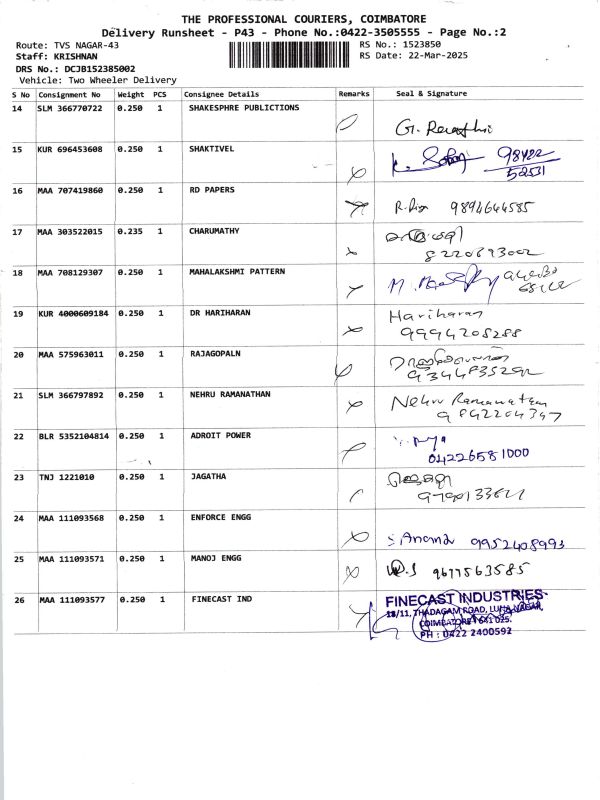 THE PROFESSIONAL COURIERS, COIMBATORE
Delivery Runsheet - P43 - Phone No.:0422-3505555 - Page No.:2
Route: TVS NAGAR-43
RS No.: 1523850
Staff: KRISHNAN
RS Date: 22-Mar-2025
DRS No.: DCJB152385002
Vehicle: Two Wheeler Delivery
S No Consignment No Weight PCS Consignee Details Remarks Seal & Signature
14 SLM 366770722 0.250 1 SHAKESPHRE PUBLICTIONS
15 KUR 696453608 0.250 1 SHAKTIVEL
98422
52531
16 MAA 707419860 0.250 1 RD PAPERS
9894644585
17 MAA 303522015 0.235 1 CHARUMATHY
8220693002
18 MAA 708129307 0.250 1 MAHALAKSHMI PATTERN
19 KUR 4000609184 0.250 1 DR HARIHARAN Hariharan
9994205288
20 MAA 575963011 0.250 1 RAJAGOPALN
21 SLM 366797892 0.250 1 NEHRU RAMANATHAN Nehru Ramanathan
9842204347
22 BLR 5352104814 0.250 1 ADROIT POWER
04226581000
23 TNJ 1221010 0.250 1 JAGATHA
24 MAA 111093568 0.250 1 ENFORCE ENGG
S. Anand 9952408993
25 MAA 111093571 0.250 1 MANOJ ENGG
9677563585
26 MAA 111093577 0.250 1 FINECAST IND
FINECAST INDUSTRIES
18/11, THADAGAM ROAD, LUNA NAGAR,
COIMBATORE - 641 025.
PH : 0422 2400592